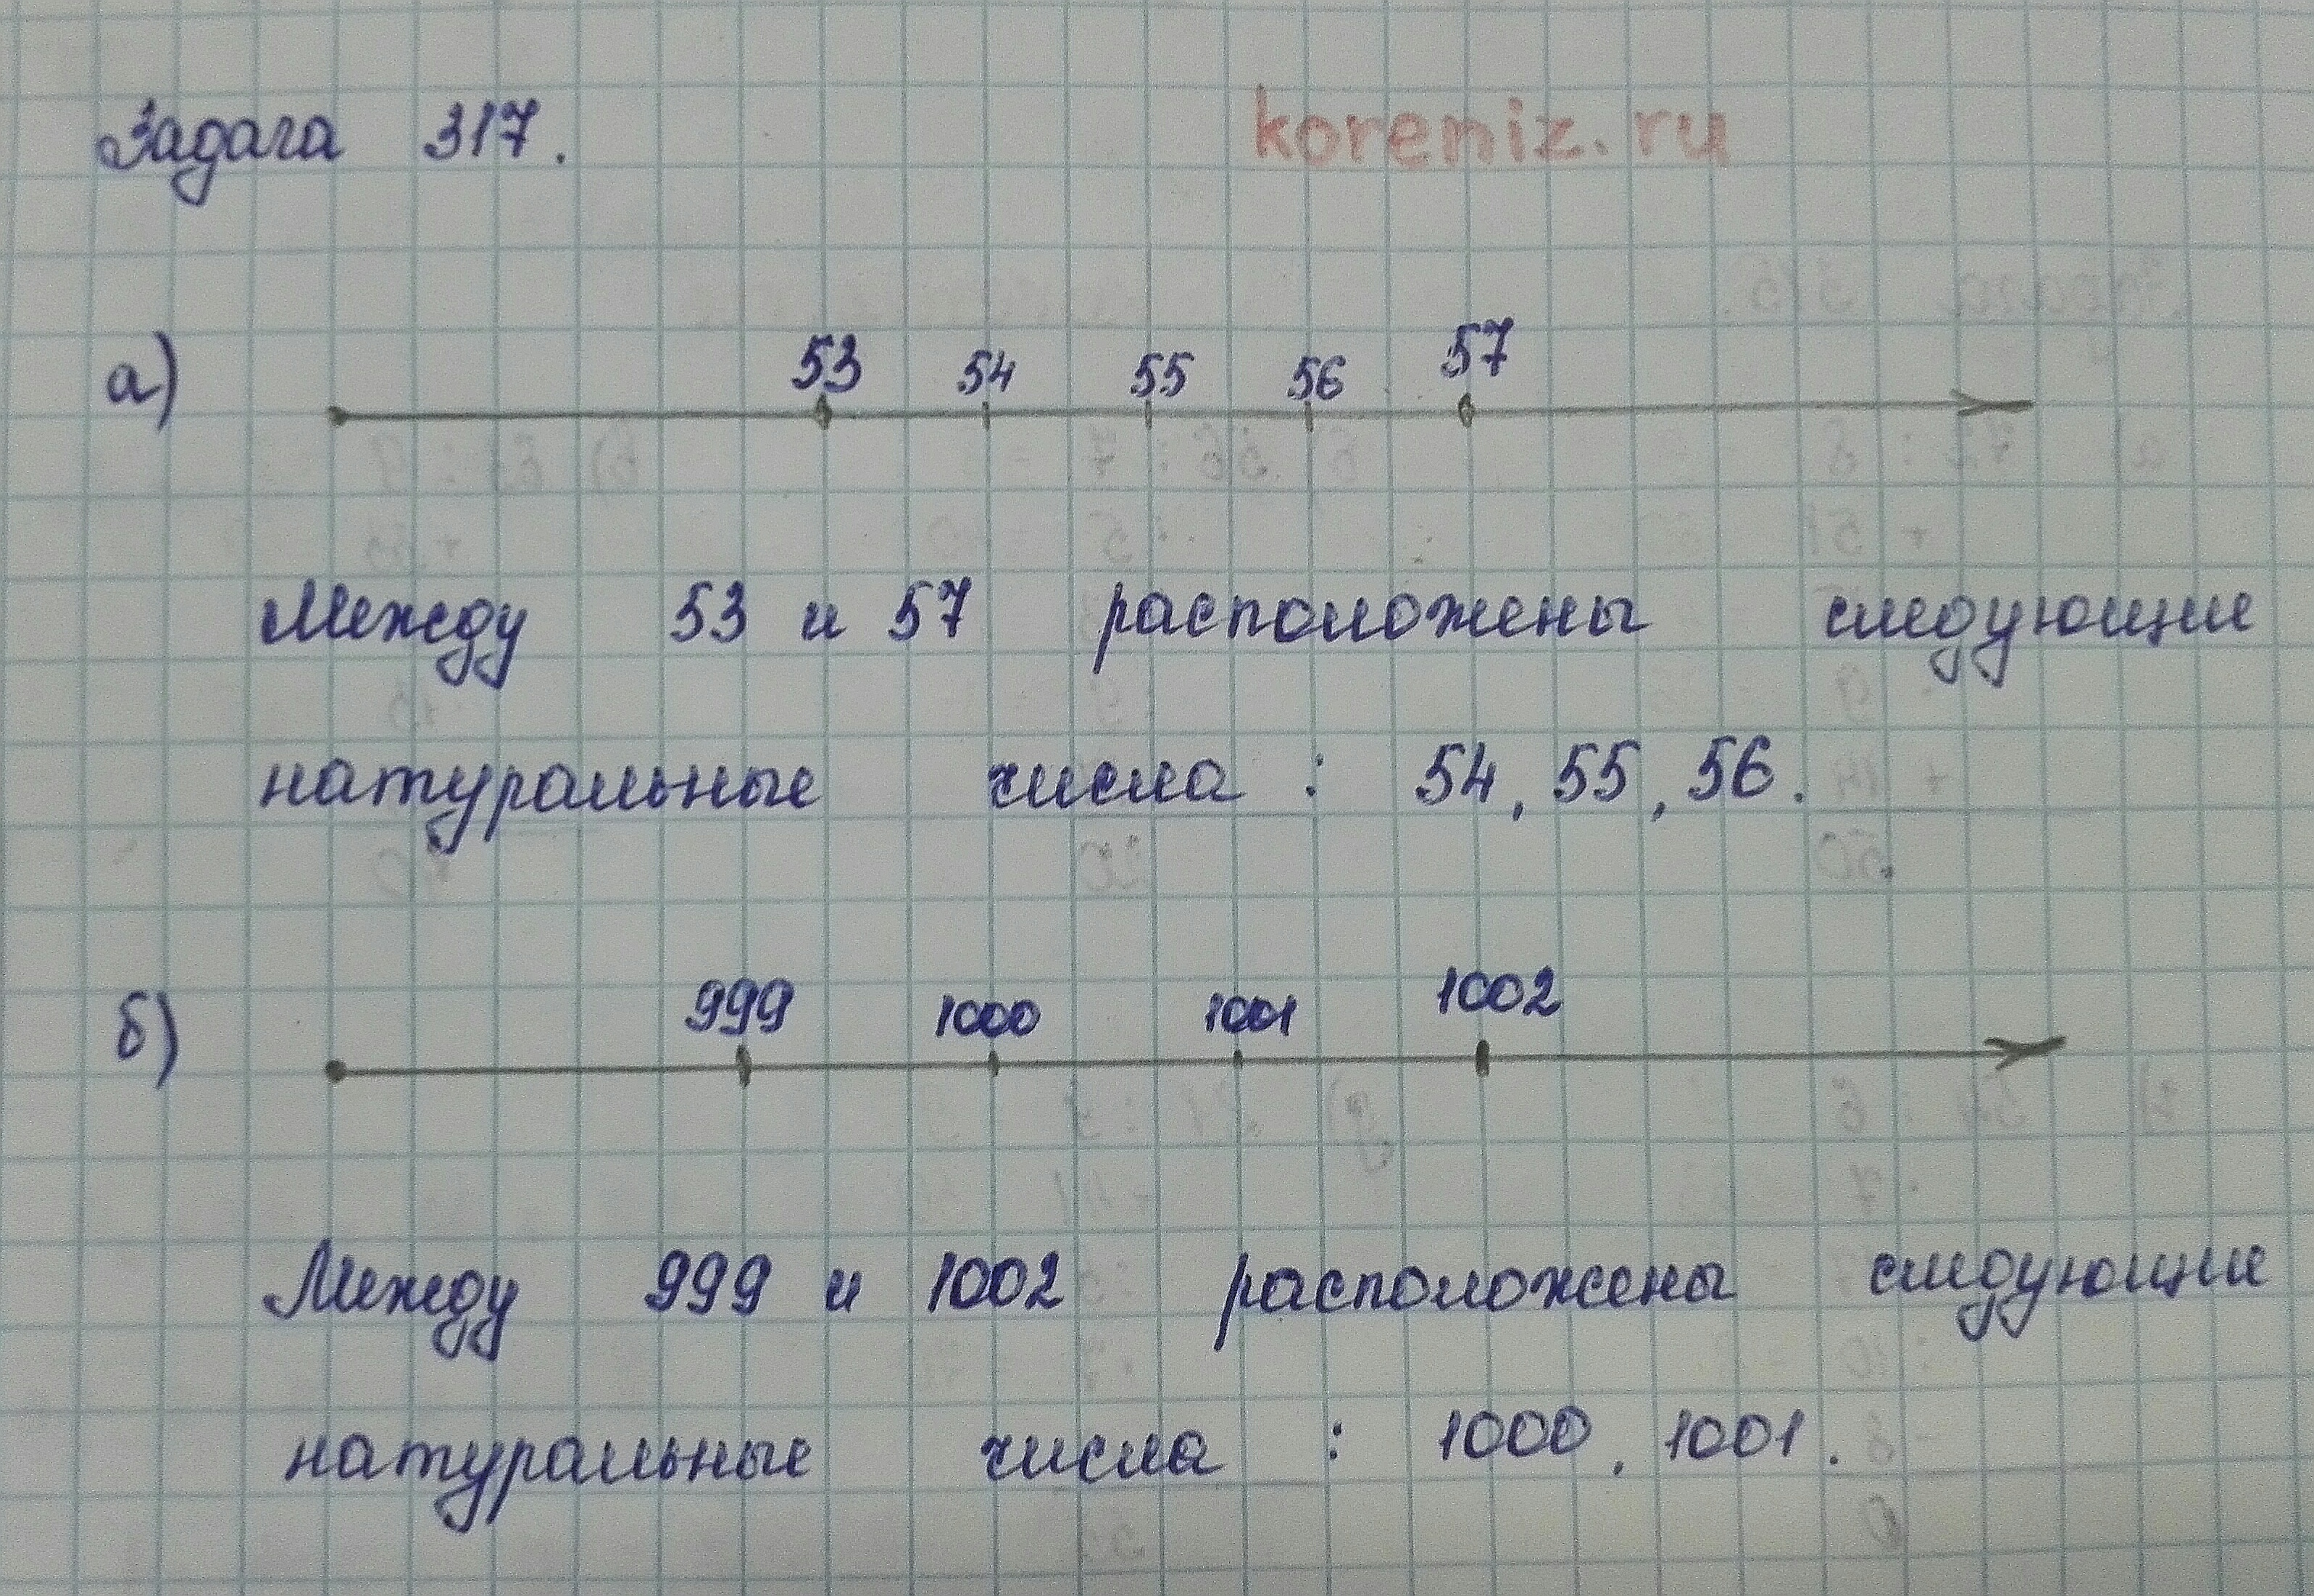 Задача 317.
koreniz.ru
а)
53 54 55 56 57
Между 53 и 57 расположены следующие
натуральные числа : 54, 55, 56.
б)
999 1000 1001 1002
Между 999 и 1002 расположены следующие
натуральные числа : 1000, 1001.